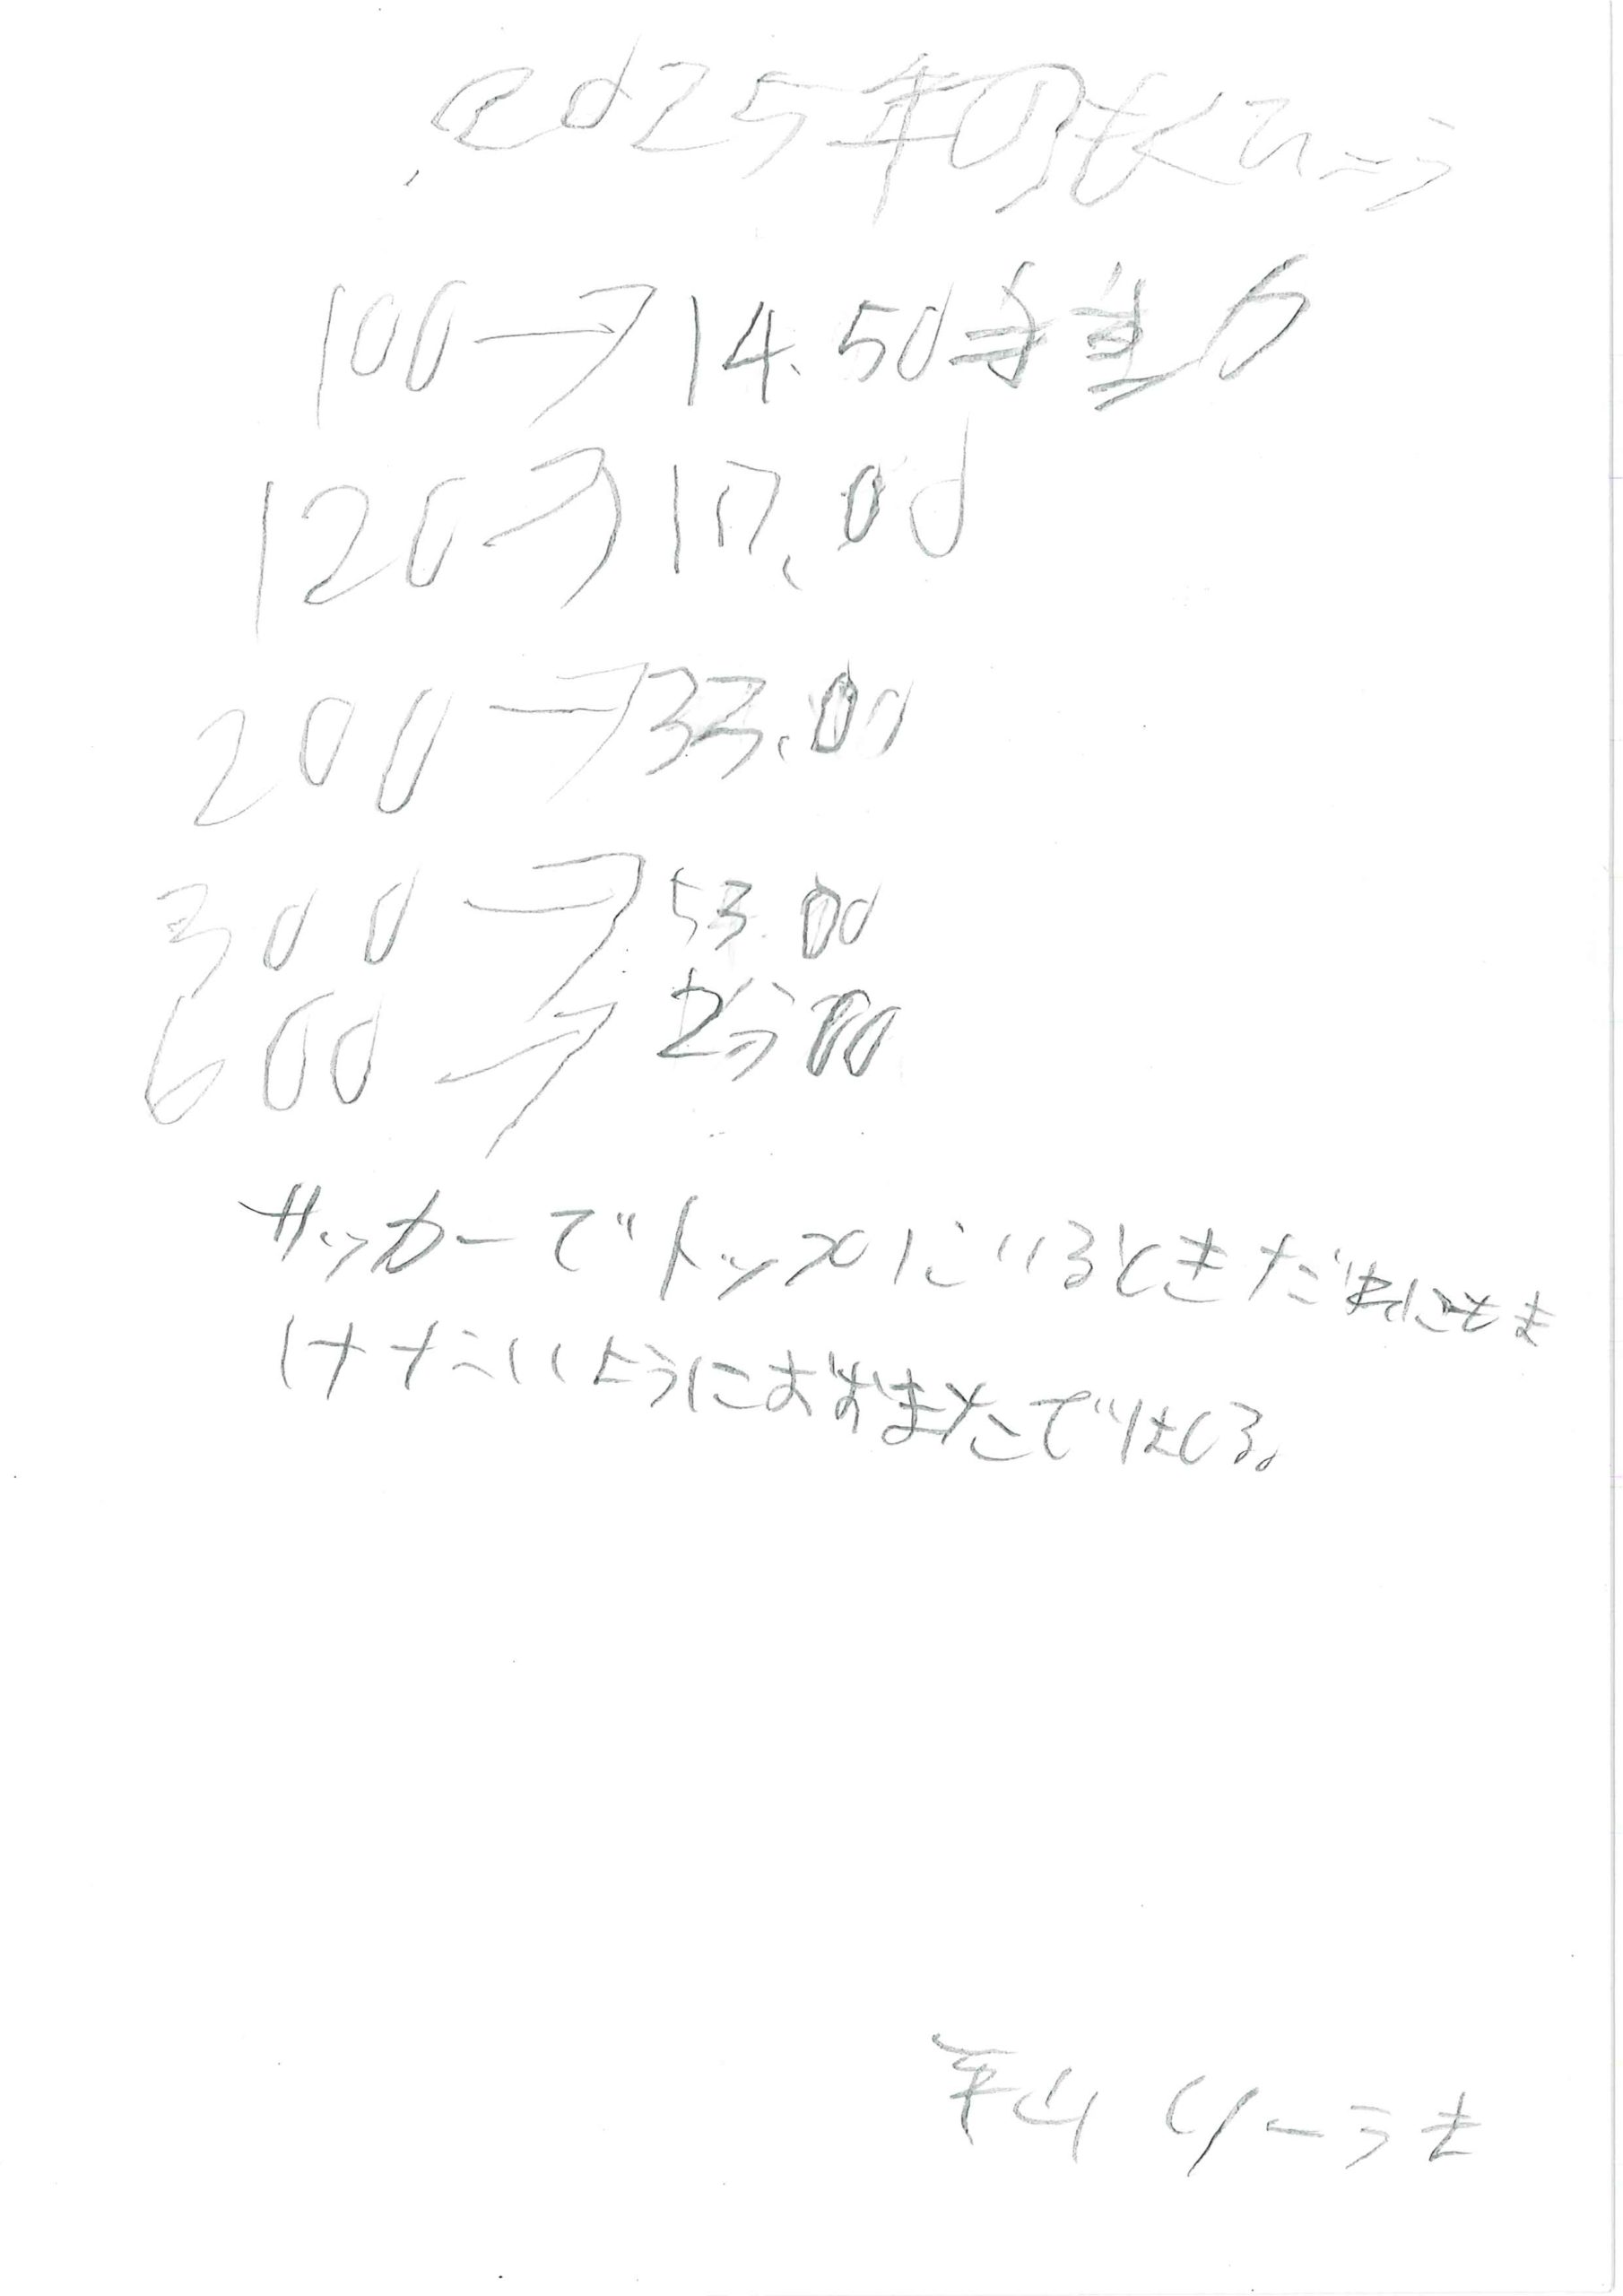 2025年のもくひょう
100→14.50
120→17.00
200→33.00
300→53.00
600→2分00
サッカーでトップにいるときだれにもま
けないようにおおまたではしる。
平山 りゅうき